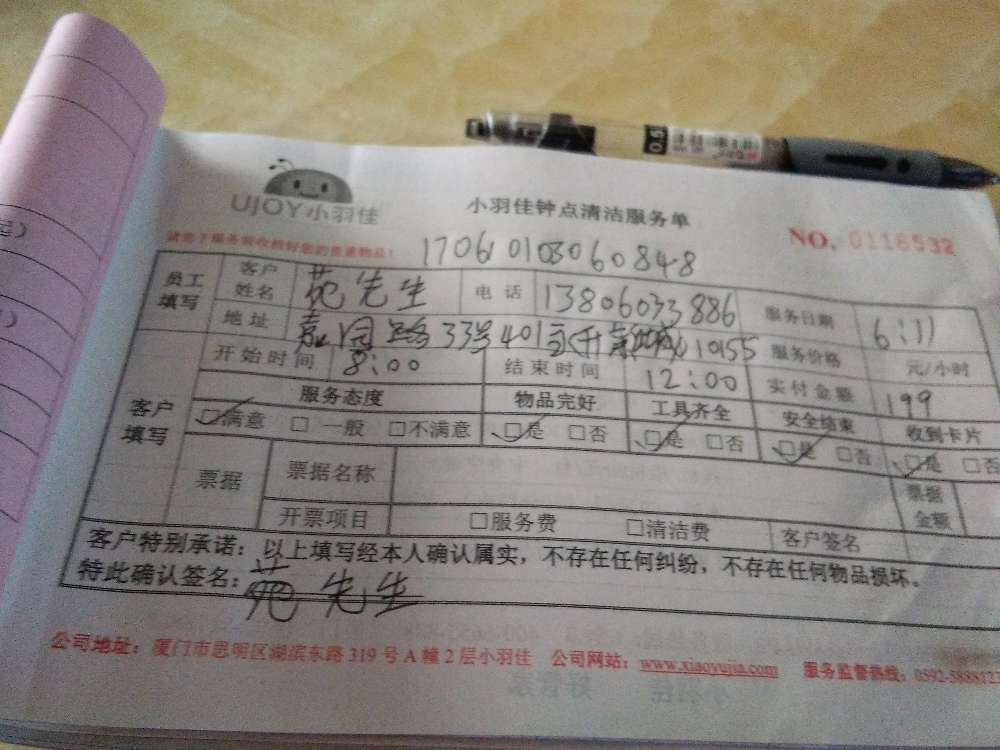 UJOY小羽佳
小羽佳钟点清洁服务单
NO. 0116532
请您于服务前收拾好您的贵重物品！
17061010306 0848
员工填写 客户姓名 苑先生 电话 13806033886 服务日期 6:11
地址 嘉园路33号401 10155 服务价格 元/小时
开始时间 8:00 结束时间 12:00 实付金额 199
客户填写 服务态度 物品完好 工具齐全 安全结束 收到卡片
☑满意 □一般 □不满意 ☑是 □否 ☑是 □否 ☑是 □否 ☑是 □否
票据 票据名称 票据金额
开票项目 □服务费 □清洁费 客户签名
客户特别承诺：以上填写经本人确认属实，不存在任何纠纷，不存在任何物品损坏。
特此确认签名：苑先生
公司地址：厦门市思明区湖滨东路319号A幢2层小羽佳 公司网站：www.xiaoyujia.com 服务监督热线：0592-5888123
0.5